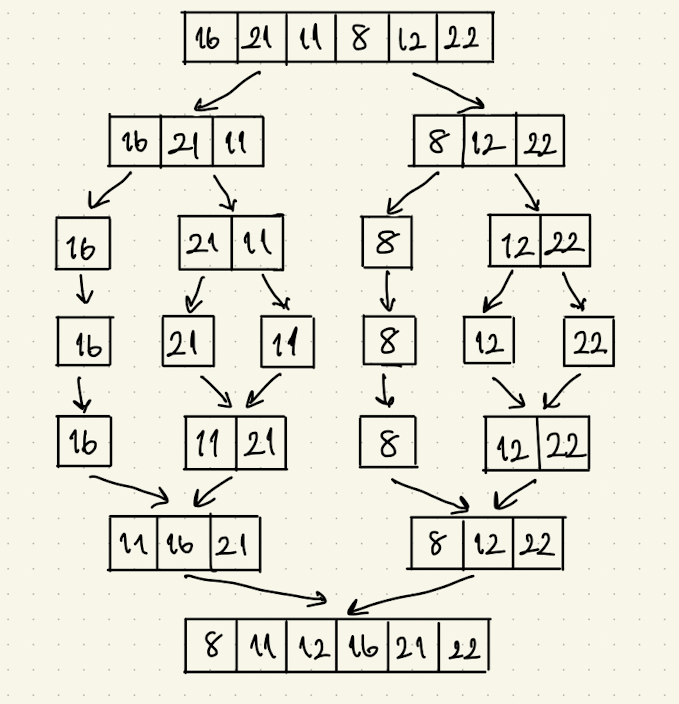 16 21 11 8 12 22
16 21 11 8 12 22
16 21 11 8 12 22
16 21 11 8 12 22
16 11 21 8 12 22
11 16 21 8 12 22
8 11 12 16 21 22